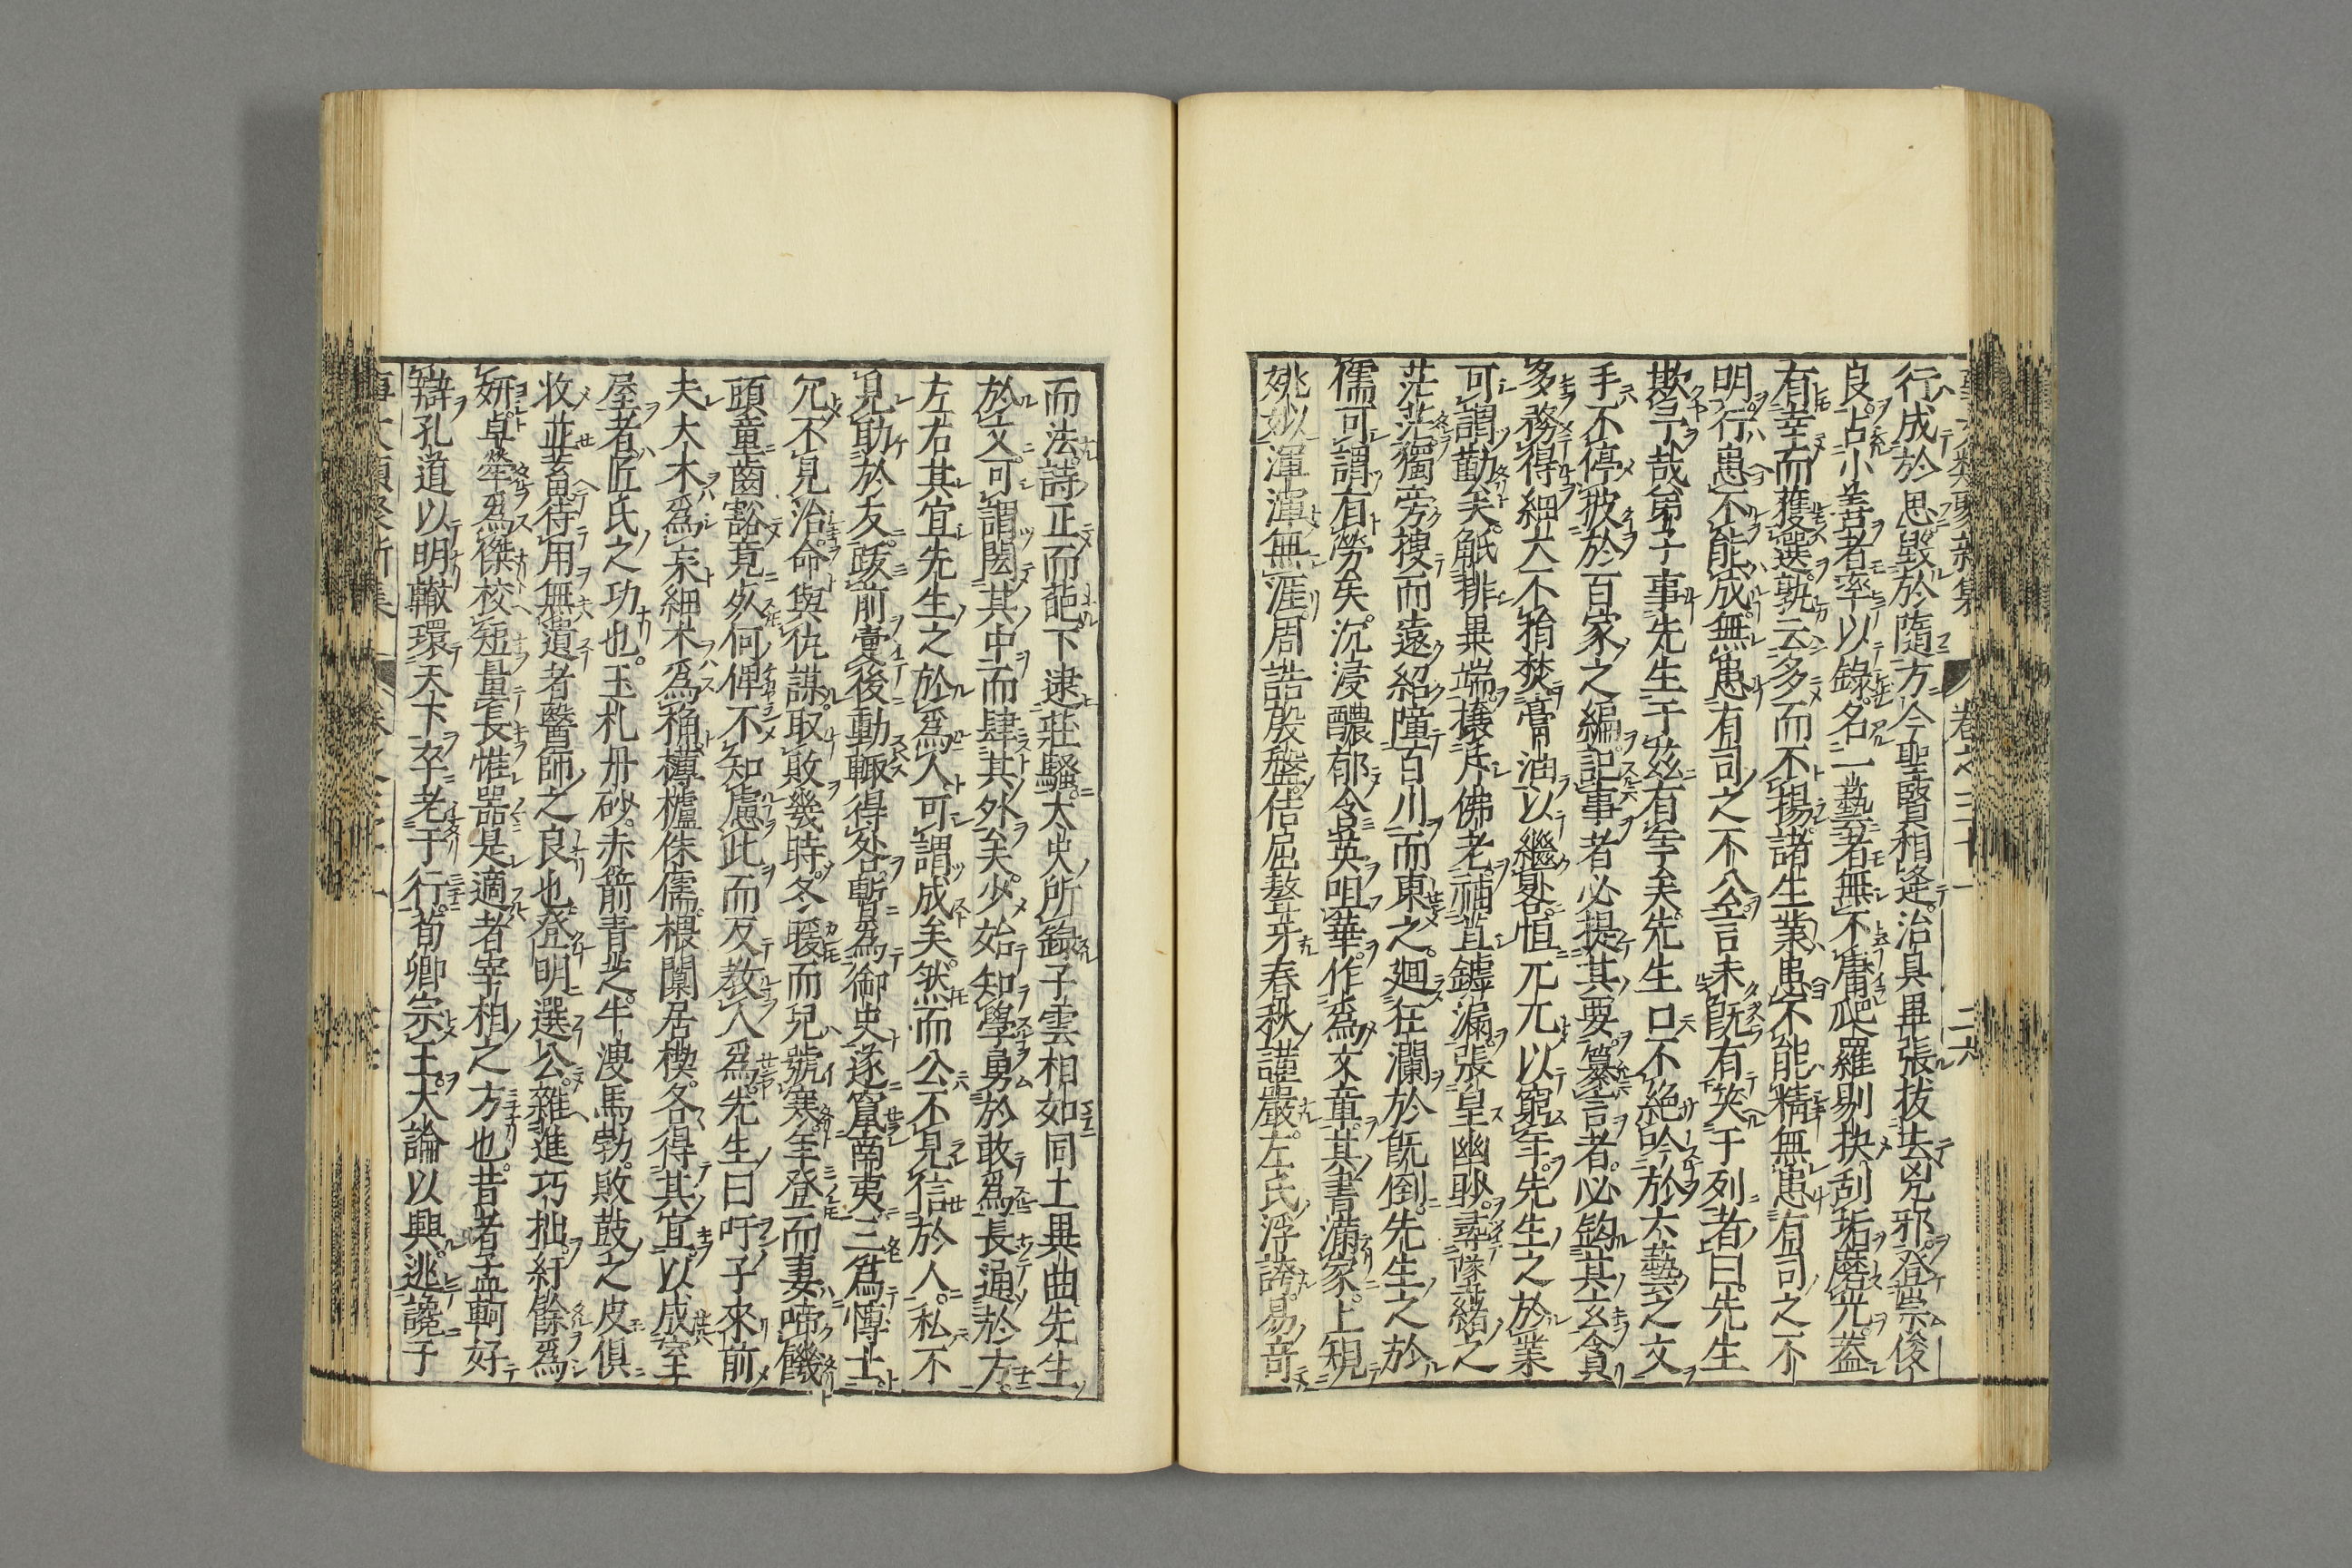 行成於思毀於隨方今聖賢相逢治具畢張拔去兇邪登崇俊
良占小善者率以錄名一藝者無不庸爬羅剔抉刮垢磨光蓋
有幸而獲選孰云多而不揚諸生業患不能精無患有司之不
明行患不能成無患有司之不公言未既有笑于列者曰先生
欺予哉弟子事先生于茲有年矣先生口不絕吟於六藝之文
手不停披於百家之編記事者必提其要纂言者必鉤其玄貪
多務得細大不捐焚膏油以繼晷恒兀兀以窮年先生之於業
可謂勤矣觝排異端攘斥佛老補苴罅漏張皇幽眇尋墜緒之
茫茫獨旁搜而遠紹障百川而東之廻狂瀾於既倒先生之於
儒可謂有勞矣沉浸醲郁含英咀華作為文章其書滿家上規
姚姒渾渾無涯周誥殷盤佶屈聱牙春秋謹嚴左氏浮誇易奇
而法詩正而葩下逮莊騷太史所錄子雲相如同工異曲先生
於文可謂閎其中而肆其外矣少始知學勇於敢為長通於方
左右其宜先生之於為人可謂成矣然而公不見信於人私不
見助於友跋前疐後動輒得咎暫為御史遂竄南夷三為博士
冗不見治命與仇謀取敗幾時冬暖而兒號寒年登而妻啼饑
頭童齒豁竟死何俾不知慮此而反教人為先生曰吁子來前
夫大木為杗細木為桷欂櫨侏儒椳闑居楔各得其宜以成室
屋者匠氏之功也玉札丹砂赤箭青芝牛溲馬勃敗鼓之皮俱
收並蓄待用無遺者醫師之良也登明選公雜進巧拙紆餘為
妍卓犖為傑校短量長惟器是適者宰相之方也昔者孟軻好
辯孔道以明轍環天下卒老于行荀卿宗王大論以興逃讒于